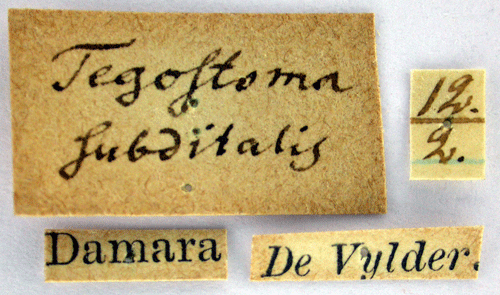 Tegostoma
subditalis
12.
2.
Damara
De Vylder.